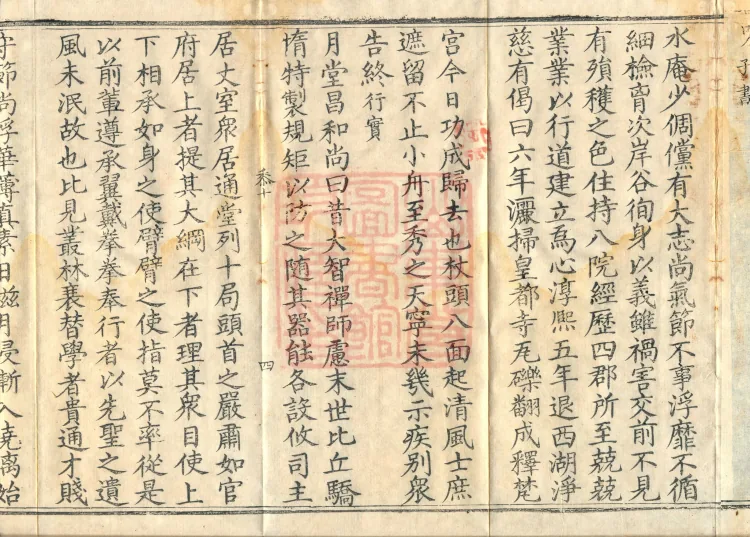 水庵少倜儻有大志尚氣節不事浮靡不循
細檢胷次岸谷徇身以義雖禍害交前不見
有殞穫之色住持八院經歷四郡所至兢兢
業業以行道建立爲心淳熙五年退西湖淨
慈有偈曰六年灑掃皇都寺瓦礫翻成釋梵
宮今日功成歸去也杖頭八面起清風士庶
遮留不止小舟至秀之天寧未幾示疾別衆
告終行實
月堂昌和尚曰昔大智禪師慮末世比丘驕
惰特製規矩以防之随其器能各設攸司主
卷十
四
居丈室衆居通堂列十局頭首之嚴肅如官
府居上者提其大綱在下者理其衆目使上
下相承如身之使臂臂之使指莫不率從是
以前輩遵承翼戴拳拳奉行者以先聖之遺
風未泯故也比見叢林衰替學者貴通才賤
守節尚浮華薄真素日滋月浸漸入澆漓始